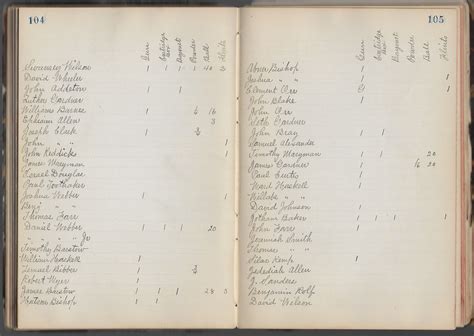 104
Gun Cartridge Box Bayonet Powder Ball Flints
Swinney Wilson 1 1 1 1 40 3
David Wheeler
John Addeton 1 1 1
Luther Cardner
Williams Barker 1 ½ 16
Ephraim Allen 3
Joseph Clark 1 1 ½
John " 1
John Reddicks 1 1
James Maryman
Paul Toothaker
Joshua Webber 1
Benj. " 1
Thomas Farr
Daniel Webber 1 1 1 20
" " Jr
Timothy Barstow
William Haskell 1
Lemuel Bibber 1
Robert Myer 1
James Barstow 1 1 1 1 28 3
Watson Bishop 1
105
Gun Cartridge Box Bayonet Powder Ball Flints
Abner Bishop 1 1
Joshua " " 1 1
Clement Orr 1 1
John Blake 1
John Orr
Seth Cardner
John Bray 1 1
Samuel Alexander
Timothy Maryman 1 1 20
James Cardner 1 16 20
Paul Curtis 1
Ward Haskell 1
" "
David Johnson 1
Jotham Baker 1 1 1 1
John Farr
Jeremiah Smith
Thomas "
Silas Kemp 1
Jedediah Allen
J. Sanders
Benjamin Rolf
David Wilson